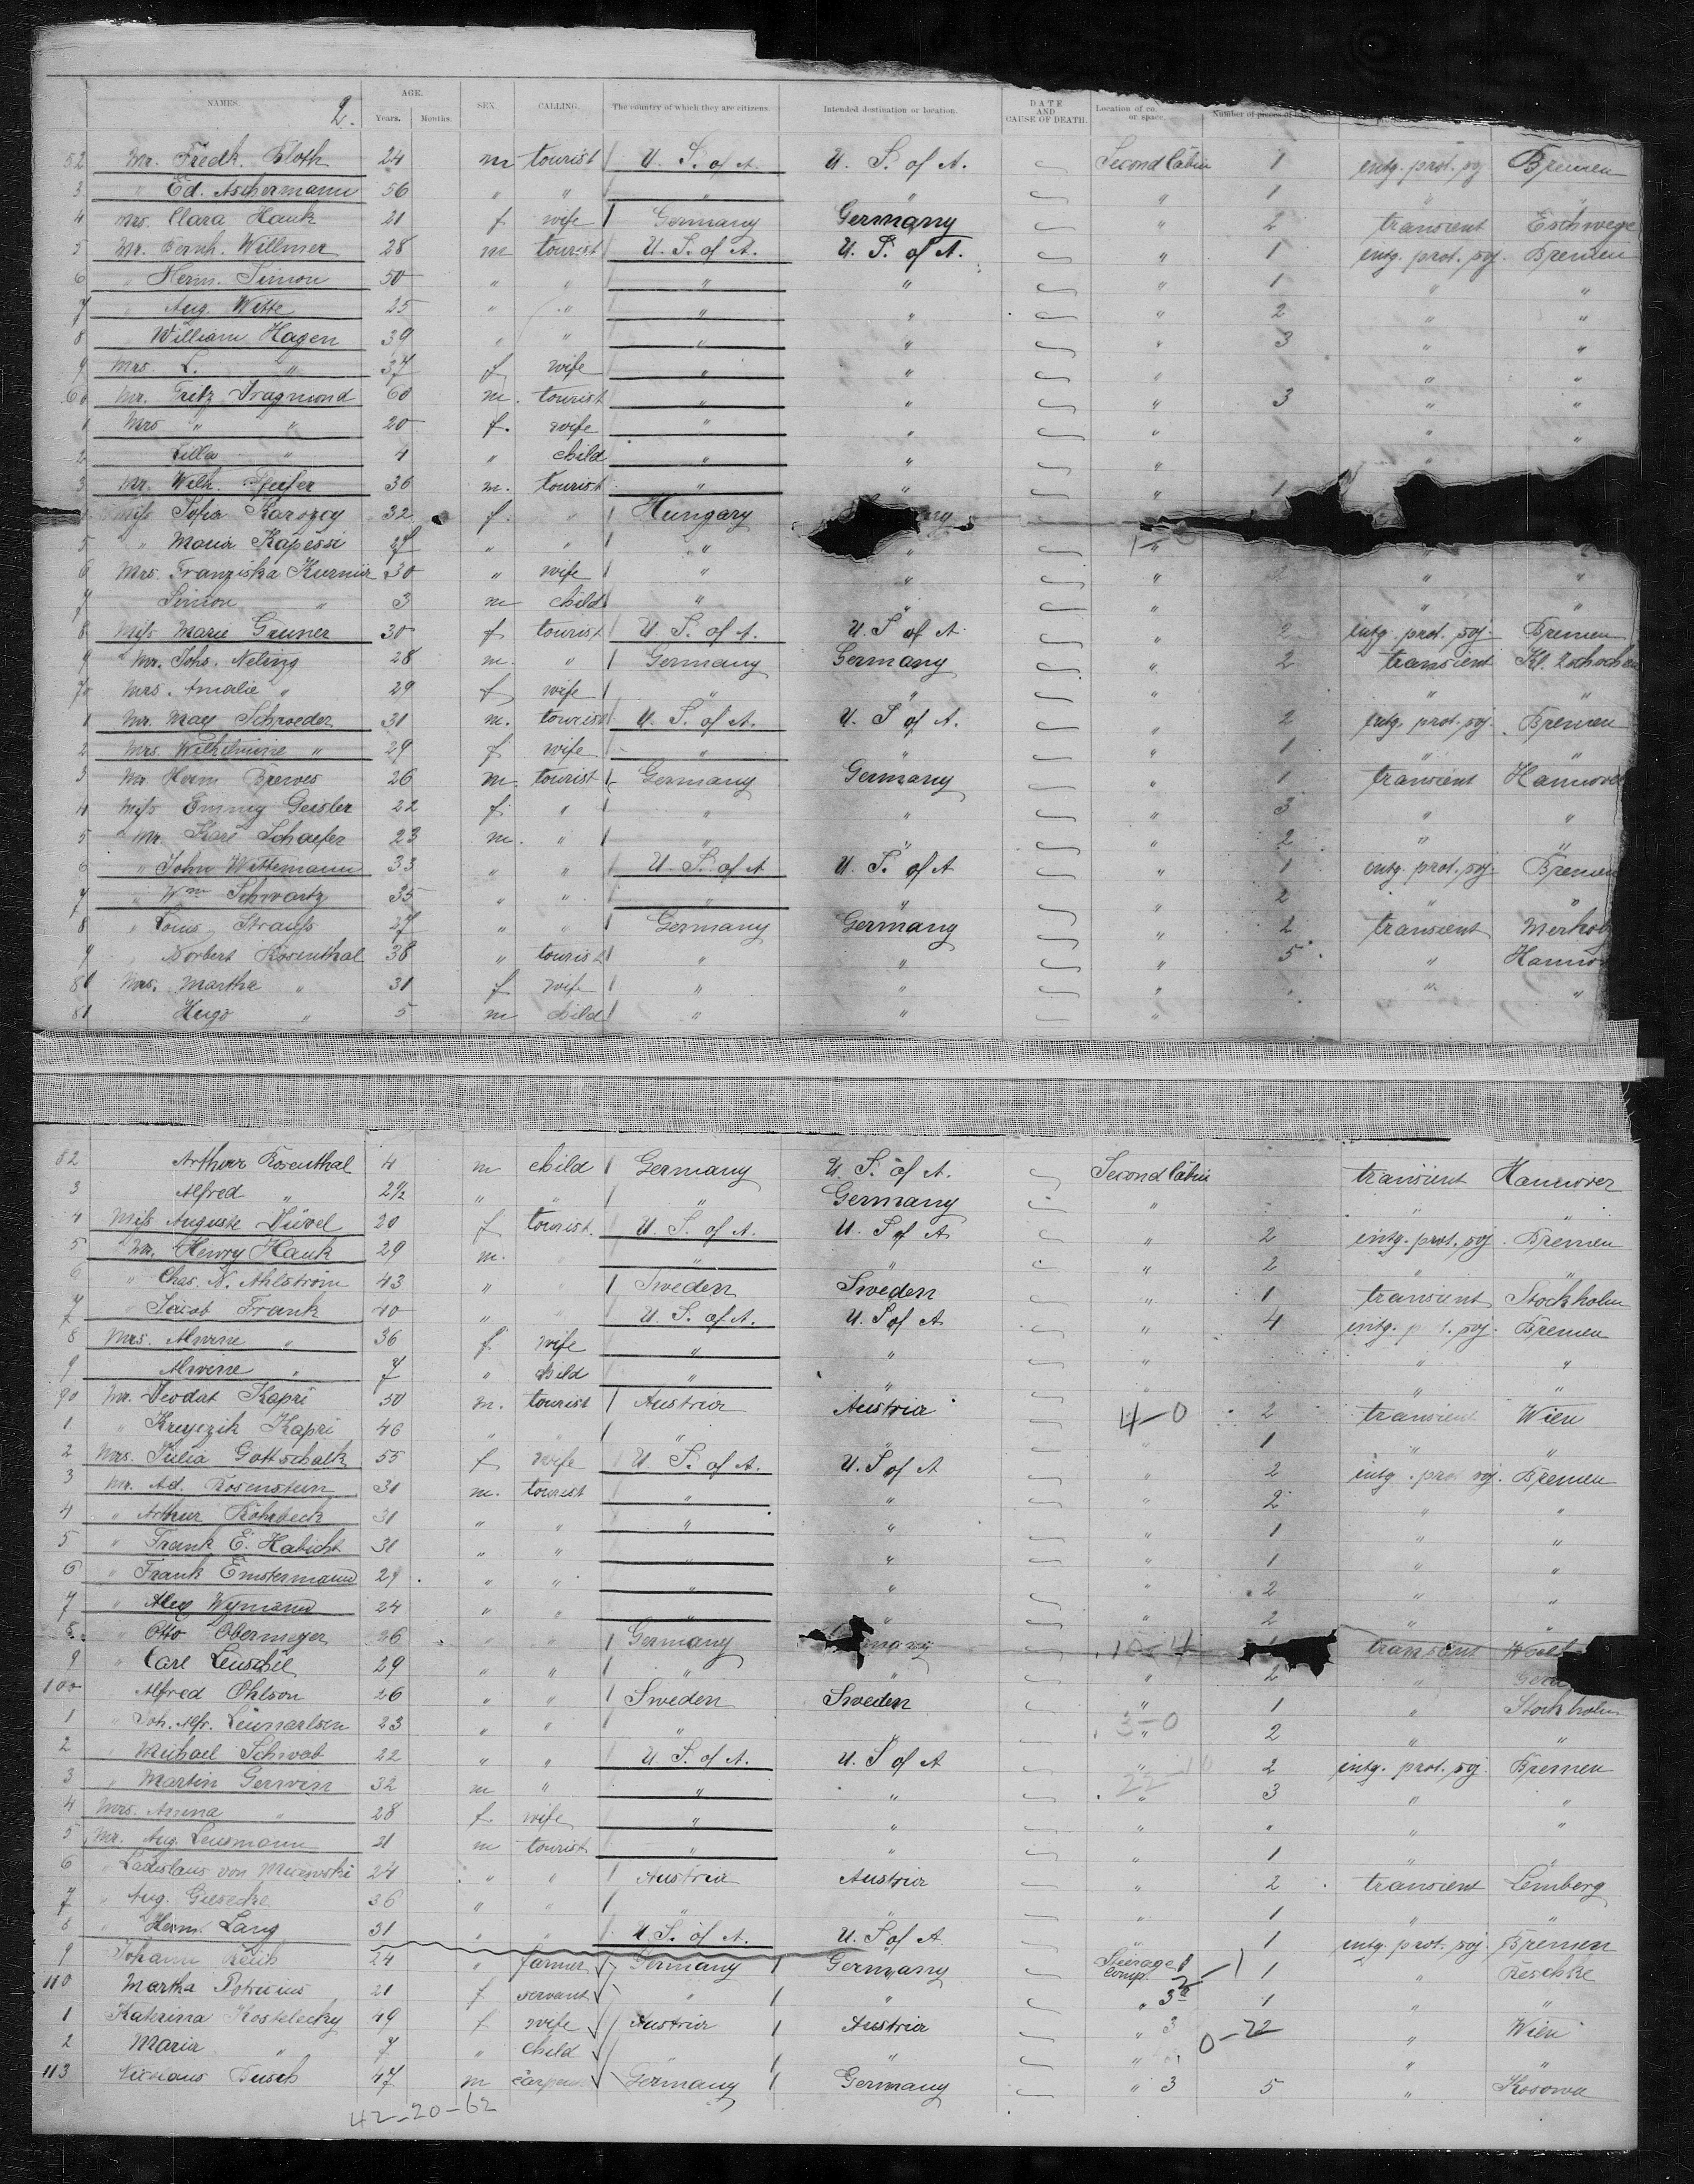 NAMES. AGE. SEX CALLING. The country of which they are citizens. Intended destination or location. DATE AND CAUSE OF DEATH. Location of co. or space. Number of pieces of
2. Years. Months.
52 Mr. Fredk. Kloth 24 m tourist U. S. of A. U. S. of A. Second Cabin 1 intg. prot. soj Bremen
3 " Ed. Aschermann 56 " " " " " 1 " "
4 Mrs. Clara Hauk 21 f wife Germany Germany " 2 transient Eschwege
5 Mr. Bernh. Willmer 28 m tourist U. S. of A. U. S. of A. " 1 intg. prot. soj. Bremen
6 " Herm. Simon 50 " " " " " 1 " "
7 " Aug. Witte 25 " " " " " 2 " "
8 William Hagen 39 " " " " " 3 " "
9 Mrs. L. " 37 f wife " " " " "
60 Mr. Fritz Dragmond 60 m. tourist " " " 3 " "
1 Mrs " " 20 f. wife " " " " "
2 Lilla " 4 " child " " "
3 Mr. Wilh. Pfeifer 36 m. tourist " " " 1
Miss Sofia 32 f. " Hungary
5 " Maria 27 " " " " "
6 Mrs. Franziska 30 " wife " " " 2 " "
7 Simon " 3 m child " " " " "
8 Miss Marie Gruner 30 f tourist U. S. of A. U. S of A. " 2 intg. prot. soj. Bremen
9 Mr. Johs. Neling 28 m. " Germany Germany " 2 transient Kl.
70 Mrs. Amalie " 29 f wife " " " " "
1 Mr. Max Schroeder 31 m. tourist U. S. of A. U. S of A. " 2 intg. prot. soj. Bremen
2 Mrs. Wilhelmine " 29 f wife " " " 1 " "
3 Mr. Herm Brewes 26 m. tourist Germany Germany " 1 transient Hannover
4 Miss Emmy Geisler 22 f " " " " 3 " "
5 Mr. Karl Schaefer 23 m. " " " " 2 " "
6 " John Wittemann 33 " " U. S. of A U. S. of A " 1 intg. prot. soj. Bremen
7 " Wm Schwartz 35 " " " " " 2 " "
8 " Louis Strauss 27 " " Germany Germany " 2 transient
9 " Norbert Rosenthal 38 " tourist " " " 5 " Hannov
80 Mrs. Martha " 31 f wife " " " " " "
81 Hugo " 5 m child " " "
82 Arthur Rosenthal 4 m child Germany U. S. of A. Second Cabin transient Hannover
3 Alfred " 2½ " " " Germany " " "
4 Miss Auguste Düvel 20 f tourist. U. S. of A. U. S of A " 2 intg. prot. soj. Bremen
5 Mr. Henry Hauk 29 m. " " " 2 " "
6 " Chas. N. Ahlström 43 " " Sweden Sweden " 1 transient Stockholm
7 " Jacob Frank 40 " " U. S. of A. U. S of A " 4 intg. soj. Bremen
8 Mrs. Alwine " 36 f wife " " " " "
9 Alwine " 7 " child " " " " "
90 Mr. Deodat Kapri 50 m. tourist Austria Austria 4-0 2 transient Wien
1. " Kapri 46 " " " " " 1 " "
2 Mrs. Julia Gottschalk 55 f wife U. S. of A. U. S of A " 2 intg. prot soj. Bremen
3 Mr. Ad. Rosenstein 30 m. tourist " " " 2 " "
4 " Arthur Rohrbeck 31 " " " " " 1 " "
5 " Frank E. Habicht 31 " " " " " 1 " "
6 " Frank Emstermann 29 " " " " " 2 " "
7 " Alex Wymann 24 " " " " " 2 " "
8 " Otto Obermeyer 26 " " Germany 10-4 transient
9 " Carl Leuschel 29 " " " " " 2 "
100 Alfred Ohlson 26 " " Sweden Sweden " 1 " Stockholm
1 " Joh. Alfr. 23 " " " " 3-0 2 " "
2 " Michael Schwab 22 " " U. S. of A. U. S of A " 2 intg. prot. soj. Bremen
3 " Martin Gerwin 32 m " " " 22-10 3 " "
4 Mrs. Anna " 28 f wife " " " " " "
5 Mr. Aug. Leusmann 21 m tourist " " " 1 " "
6 " Ladislaus von 24 " " Austria Austria " 2 transient Lemberg
7 " Aug. Giesecke 36 " " " " " 1 " "
8 " Herm. Lang 31 " " U. S. of A. U. S of A " 1 intg. prot. soj. Bremen
9 Johann 24 " farmer Germany Germany Steerage comp. 2-1 1 " Reschke
110 Martha 21 f servant " " " 3 1 " "
1 Katerina Kostelecky 49 f wife Austria Austria " 3 0-22 " Wien
2 Maria " 7 " child " " " " "
113 Nicolaus Busch 47 m Germany Germany " 3 5 " Kosowa
42-20-62